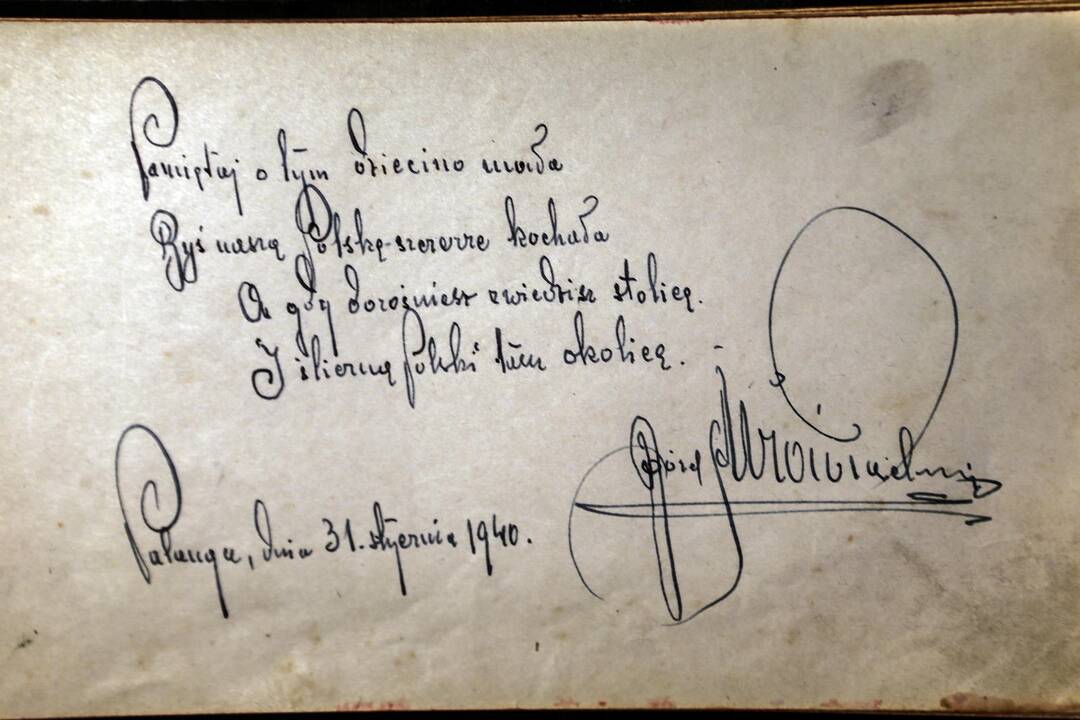 Pamiętaj o tym dziecino mała
Byś naszą Polskę szczerze kochała
A gdy dorośniesz zwiedzisz stolicę.
I śliczną Polski tam okolicę. -
Józef
Palanga, dnia 31. stycznia 1940.